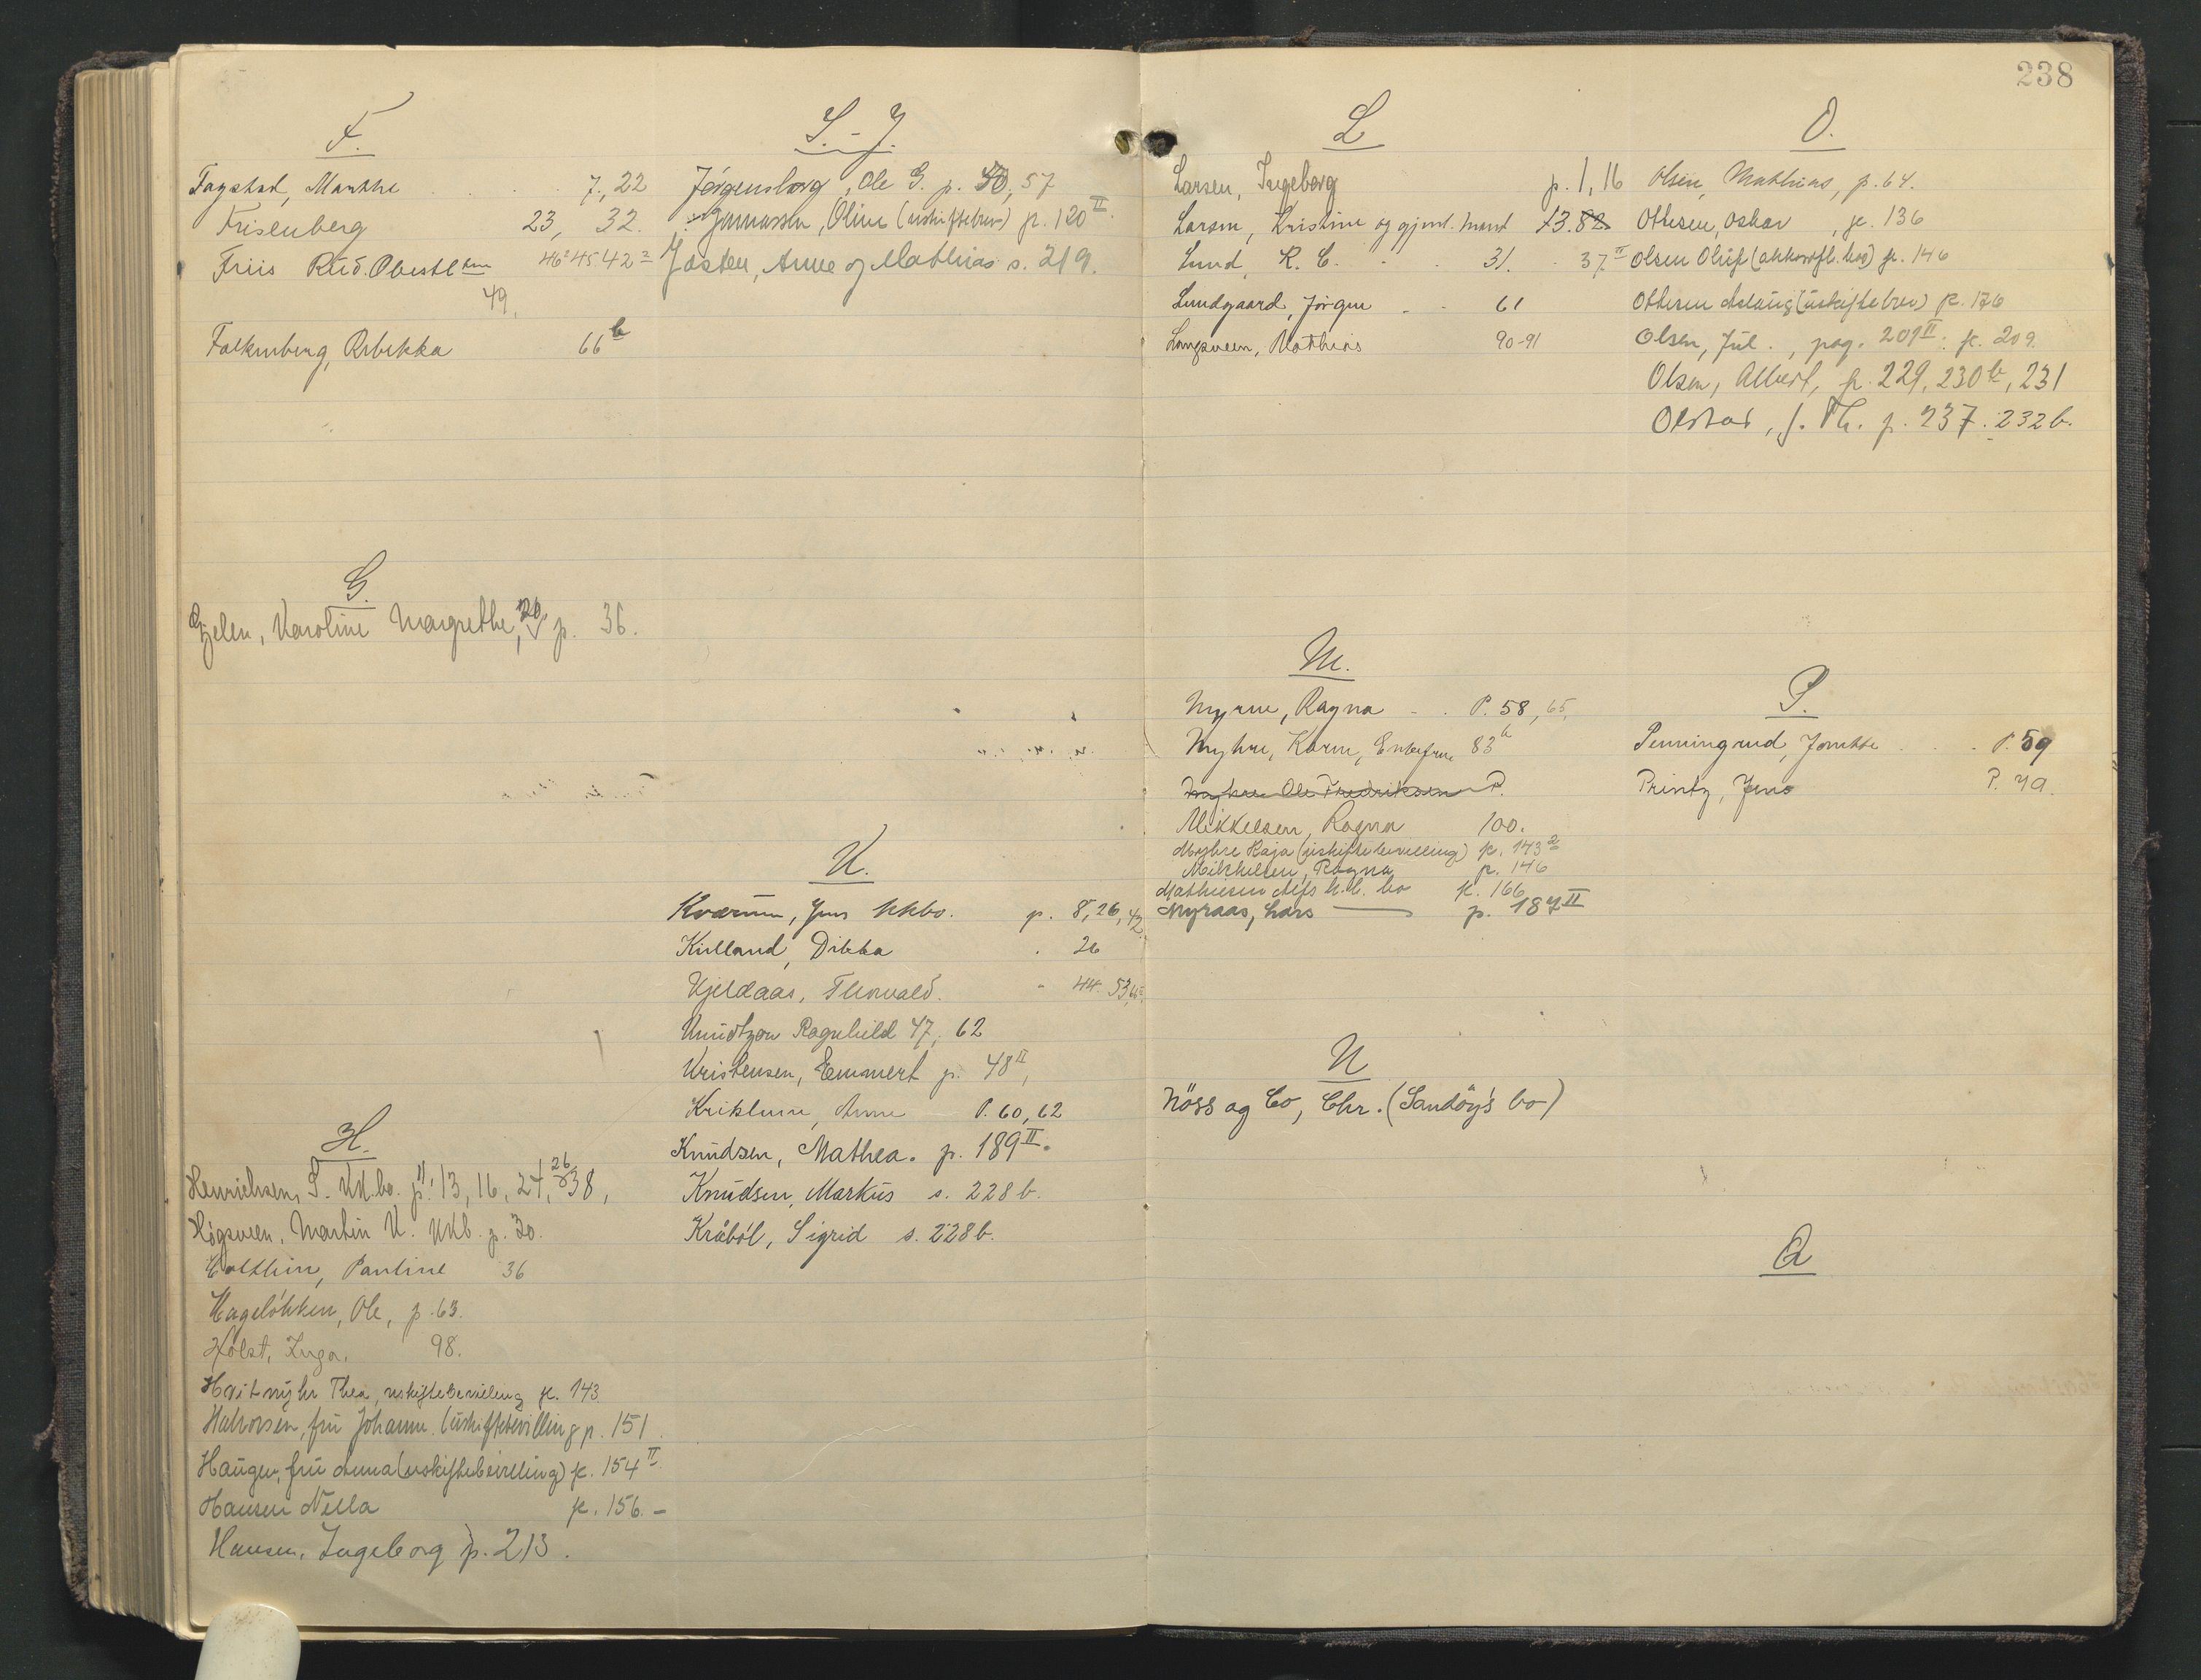 238
F.
Fagstad, Marthe 7, 22
Frisenberg 23, 32.
Friis Rud. Oberstl
49.
Falkenberg, Rebekka 66 b
G.
Gjelen, Karoline Margrethe, 20, p. 36.
H.
Henrichsen, S. KK.bo. p. 11, 13, 16, 24, 26, 38,
Högsveen, Martin K. KKb. p. 30.
Pauline 36
Hagelökken, Ole, p. 63.
Holst, Inga. 98.
Hvitmyhr Thea, uskiftebevilling p. 143
Halvorsen, fru Johanne (uskiftebevilling p. 151.
Haugen, fru Anna (uskiftebevilling) p. 154 II
Hansen Nella p. 156. –
Hansen, Ingeborg p. 213.
I. - J.
Jörgensborg, Ole G. p. 50, 57
Oline (uskiftebrev) p. 120 II.
Josten, Anne og Mathias s. 219.
K.
Kværum, Jens kkbo. p. 8, 26, 42.
Kielland, Dikka . 26
Kjeldaas, Thorvald. " 44. 53,
Knudtzon Ragnhild 47, 62
Kristensen, Emmert p. 48 II,
Anne P. 60, 62
Knudsen, Mathea. p. 189 II.
Knudsen, Markus s. 228 b.
Kråböl, Sigrid s. 228 b.
L
Larsen, Ingeborg p. 1, 16
Larsen, Kristine og gjenl. mand 73. 82
Lund, K. C. 31. 37 II
Lundgaard, Jörgen 61
Langsveen, Mathias 90-91
M.
Myrne, Ragna P. 58, 65,
Myhre, Karen, Enkefru 83 b
Myhre Ole Fredriksen P.
Mikkelsen, Ragna 100.
Myhre Kaja (uskiftebevilling) p. 143 a
Mikkelsen, Ragna p. 146
Mathiesen Alfs k.k. bo p. 166
Myraas, Lars — p. 187 II
N
Nöss og Co, Chr. (Sandöy's bo)
O.
Olsen, Mathias, p. 64.
Ottesen, Oskar, p. 136
Olsen Oluf (akkordfl. bo) p. 146
Ottesen Aslaug (uskiftebrev) p. 176
Olsen, Jul., pag. 201 II. p. 209.
Olsen, Albert, p. 229, 230 b, 231
Olstad, J. Th. p. 237. 232 b.
P.
Penningrud, Jonette P. 59
Printz, Jens P. 79.
Q